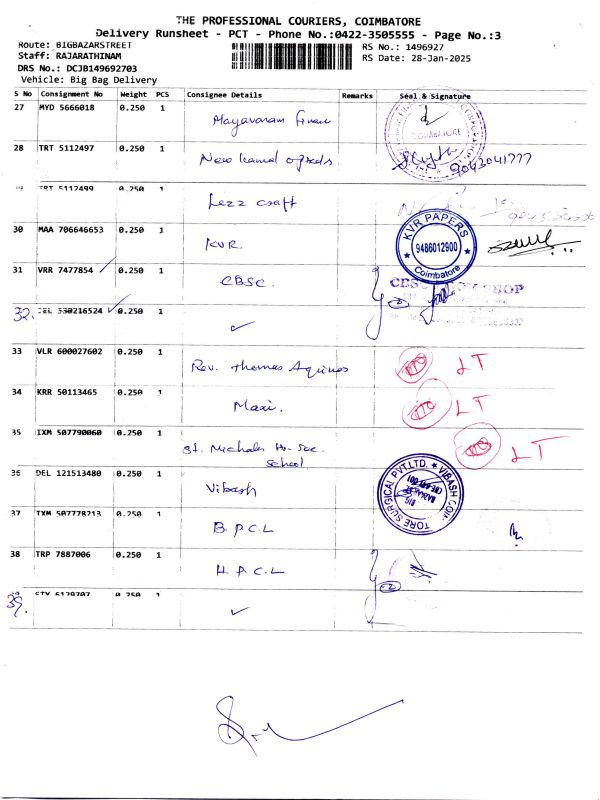 THE PROFESSIONAL COURIERS, COIMBATORE
Delivery Runsheet - PCT - Phone No.:0422-3505555 - Page No.:3
Route: BIGBAZARSTREET
RS No.: 1496927
Staff: RAJARATHINAM
RS Date: 28-Jan-2025
DRS No.: DCJB149692703
Vehicle: Big Bag Delivery
S No Consignment No Weight PCS Consignee Details Remarks Seal & Signature
27 MYD 5666018 0.250 1
COIMBATORE
28 TRT 5112497 0.250 1
New kamal
9043041777
TRT 5112499 0.250 1
Lezz craft
30 MAA 706646653 0.250 1
KVR.
KVR PAPERS
9486012900
Coimbatore
31 VRR 7477854 0.250 1
CBSC.
32. DEL 530216524 0.250 1
33 VLR 600027602 0.250 1
Rev. Thomas Aquinas
LT
34 KRR 50113465 0.250 1
Maxi.
LT
35 IXM 507790060 0.250 1
St. Michales Hr. Sec.
school
LT
36 DEL 121513480 0.250 1
Vibash
TORE SURGICAL PVT.LTD. ★ VIBASH
37 IXM 507778213 0.250 1
B.P.C.L
38 TRP 7887006 0.250 1
H.P.C.L
39. 0.250 1